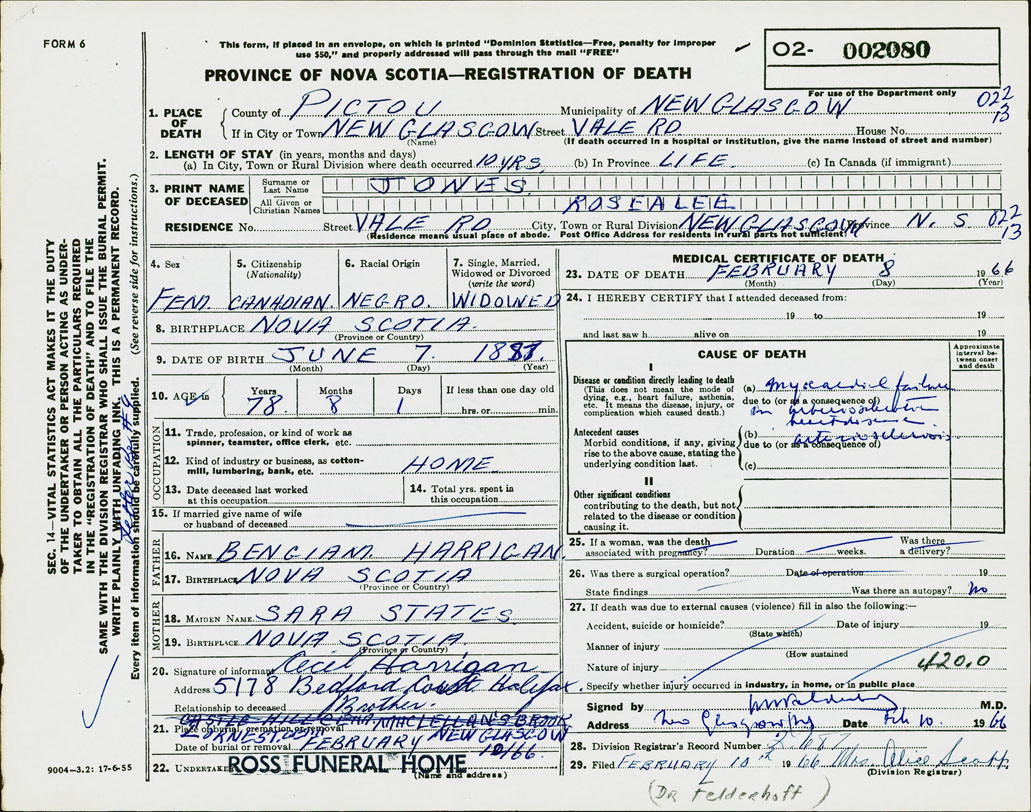 FORM 6
This form, if placed in an envelope, on which is printed "Dominion Statistics—Free, penalty for improper
use $50," and properly addressed will pass through the mail "FREE"
O2- 002080
PROVINCE OF NOVA SCOTIA—REGISTRATION OF DEATH
For use of the Department only
1. PLACE OF DEATH County of PICTOU Municipality of NEW GLASGOW 022 13
If in City or Town NEW GLASGOW Street VALE RD House No.
(Name) (If death occurred in a hospital or institution, give the name instead of street and number)
2. LENGTH OF STAY (in years, months and days)
(a) In City, Town or Rural Division where death occurred 10 YRS (b) In Province LIFE. (c) In Canada (if immigrant)
3. PRINT NAME OF DECEASED Surname or Last Name JONES
All Given or Christian Names ROSEALEE
RESIDENCE No. Street VALE RD City, Town or Rural Division NEW GLASGOW Province N. S 022 13
(Residence means usual place of abode. Post Office Address for residents in rural parts not sufficient)
4. Sex FEM.
5. Citizenship (Nationality) CANADIAN
6. Racial Origin NEGRO.
7. Single, Married, Widowed or Divorced (write the word) WIDOWED
8. BIRTHPLACE NOVA SCOTIA.
(Province or Country)
9. DATE OF BIRTH JUNE 7. 1887.
(Month) (Day) (Year)
10. AGE in Years 78. Months 8 Days 1 If less than one day old hrs. or min.
OCCUPATION
11. Trade, profession, or kind of work as spinner, teamster, office clerk, etc.
12. Kind of industry or business, as cotton-mill, lumbering, bank, etc. HOME
13. Date deceased last worked at this occupation
14. Total yrs. spent in this occupation
15. If married give name of wife or husband of deceased
FATHER
16. NAME BENGIAM HARRIGAN.
17. BIRTHPLACE NOVA SCOTIA
(Province or Country)
MOTHER
18. MAIDEN NAME SARA STATES
19. BIRTHPLACE NOVA SCOTIA
(Province or Country)
20. Signature of informant Cecil Harrigan
Address 5178 Bedford Halifax.
Relationship to deceased Brother.
21. Place of burial, cremation or removal MACLELLAN'S BROOK
NEW GLASGOW
Date of burial or removal FEBRUARY 10/66.
22. UNDERTAKER ROSS FUNERAL HOME
(Name and address)
9004—3.2: 17-6-55
MEDICAL CERTIFICATE OF DEATH
23. DATE OF DEATH FEBRUARY 8 1966
(Month) (Day) (Year)
24. I HEREBY CERTIFY that I attended deceased from:
19 to 19
and last saw h alive on 19
CAUSE OF DEATH
Approximate interval between onset and death
I
Disease or condition directly leading to death (This does not mean the mode of dying, e.g., heart failure, asthenia, etc. It means the disease, injury, or complication which caused death.)
(a) myocardial failure
due to (or as a consequence of)
heart disease
Antecedent causes
Morbid conditions, if any, giving rise to the above cause, stating the underlying condition last.
(b) arteriosclerosis
due to (or as a consequence of)
(c)
II
Other significant conditions
contributing to the death, but not related to the disease or condition causing it.
25. If a woman, was the death associated with pregnancy? Duration weeks. Was there a delivery?
26. Was there a surgical operation? Date of operation 19
State findings Was there an autopsy? No
27. If death was due to external causes (violence) fill in also the following:—
Accident, suicide or homicide? Date of injury 19
(State which)
Manner of injury
(How sustained
Nature of injury 420.0
Specify whether injury occurred in industry, in home, or in public place
Signed by M.D.
Address New Glasgow Date Feb 10. 1966
28. Division Registrar's Record Number
29. Filed FEBRUARY 10th 1966 Mrs. Alice Scott
(Division Registrar)
(DR Felderhoff)
SEC. 14—VITAL STATISTICS ACT MAKES IT THE DUTY
OF THE UNDERTAKER OR PERSON ACTING AS UNDER-
TAKER TO OBTAIN ALL THE PARTICULARS REQUIRED
IN THE "REGISTRATION OF DEATH" AND TO FILE THE
SAME WITH THE DIVISION REGISTRAR WHO SHALL ISSUE THE BURIAL PERMIT.
WRITE PLAINLY WITH UNFADING INK. THIS IS A PERMANENT RECORD.
Every item of information should be carefully supplied. (See reverse side for instructions.)